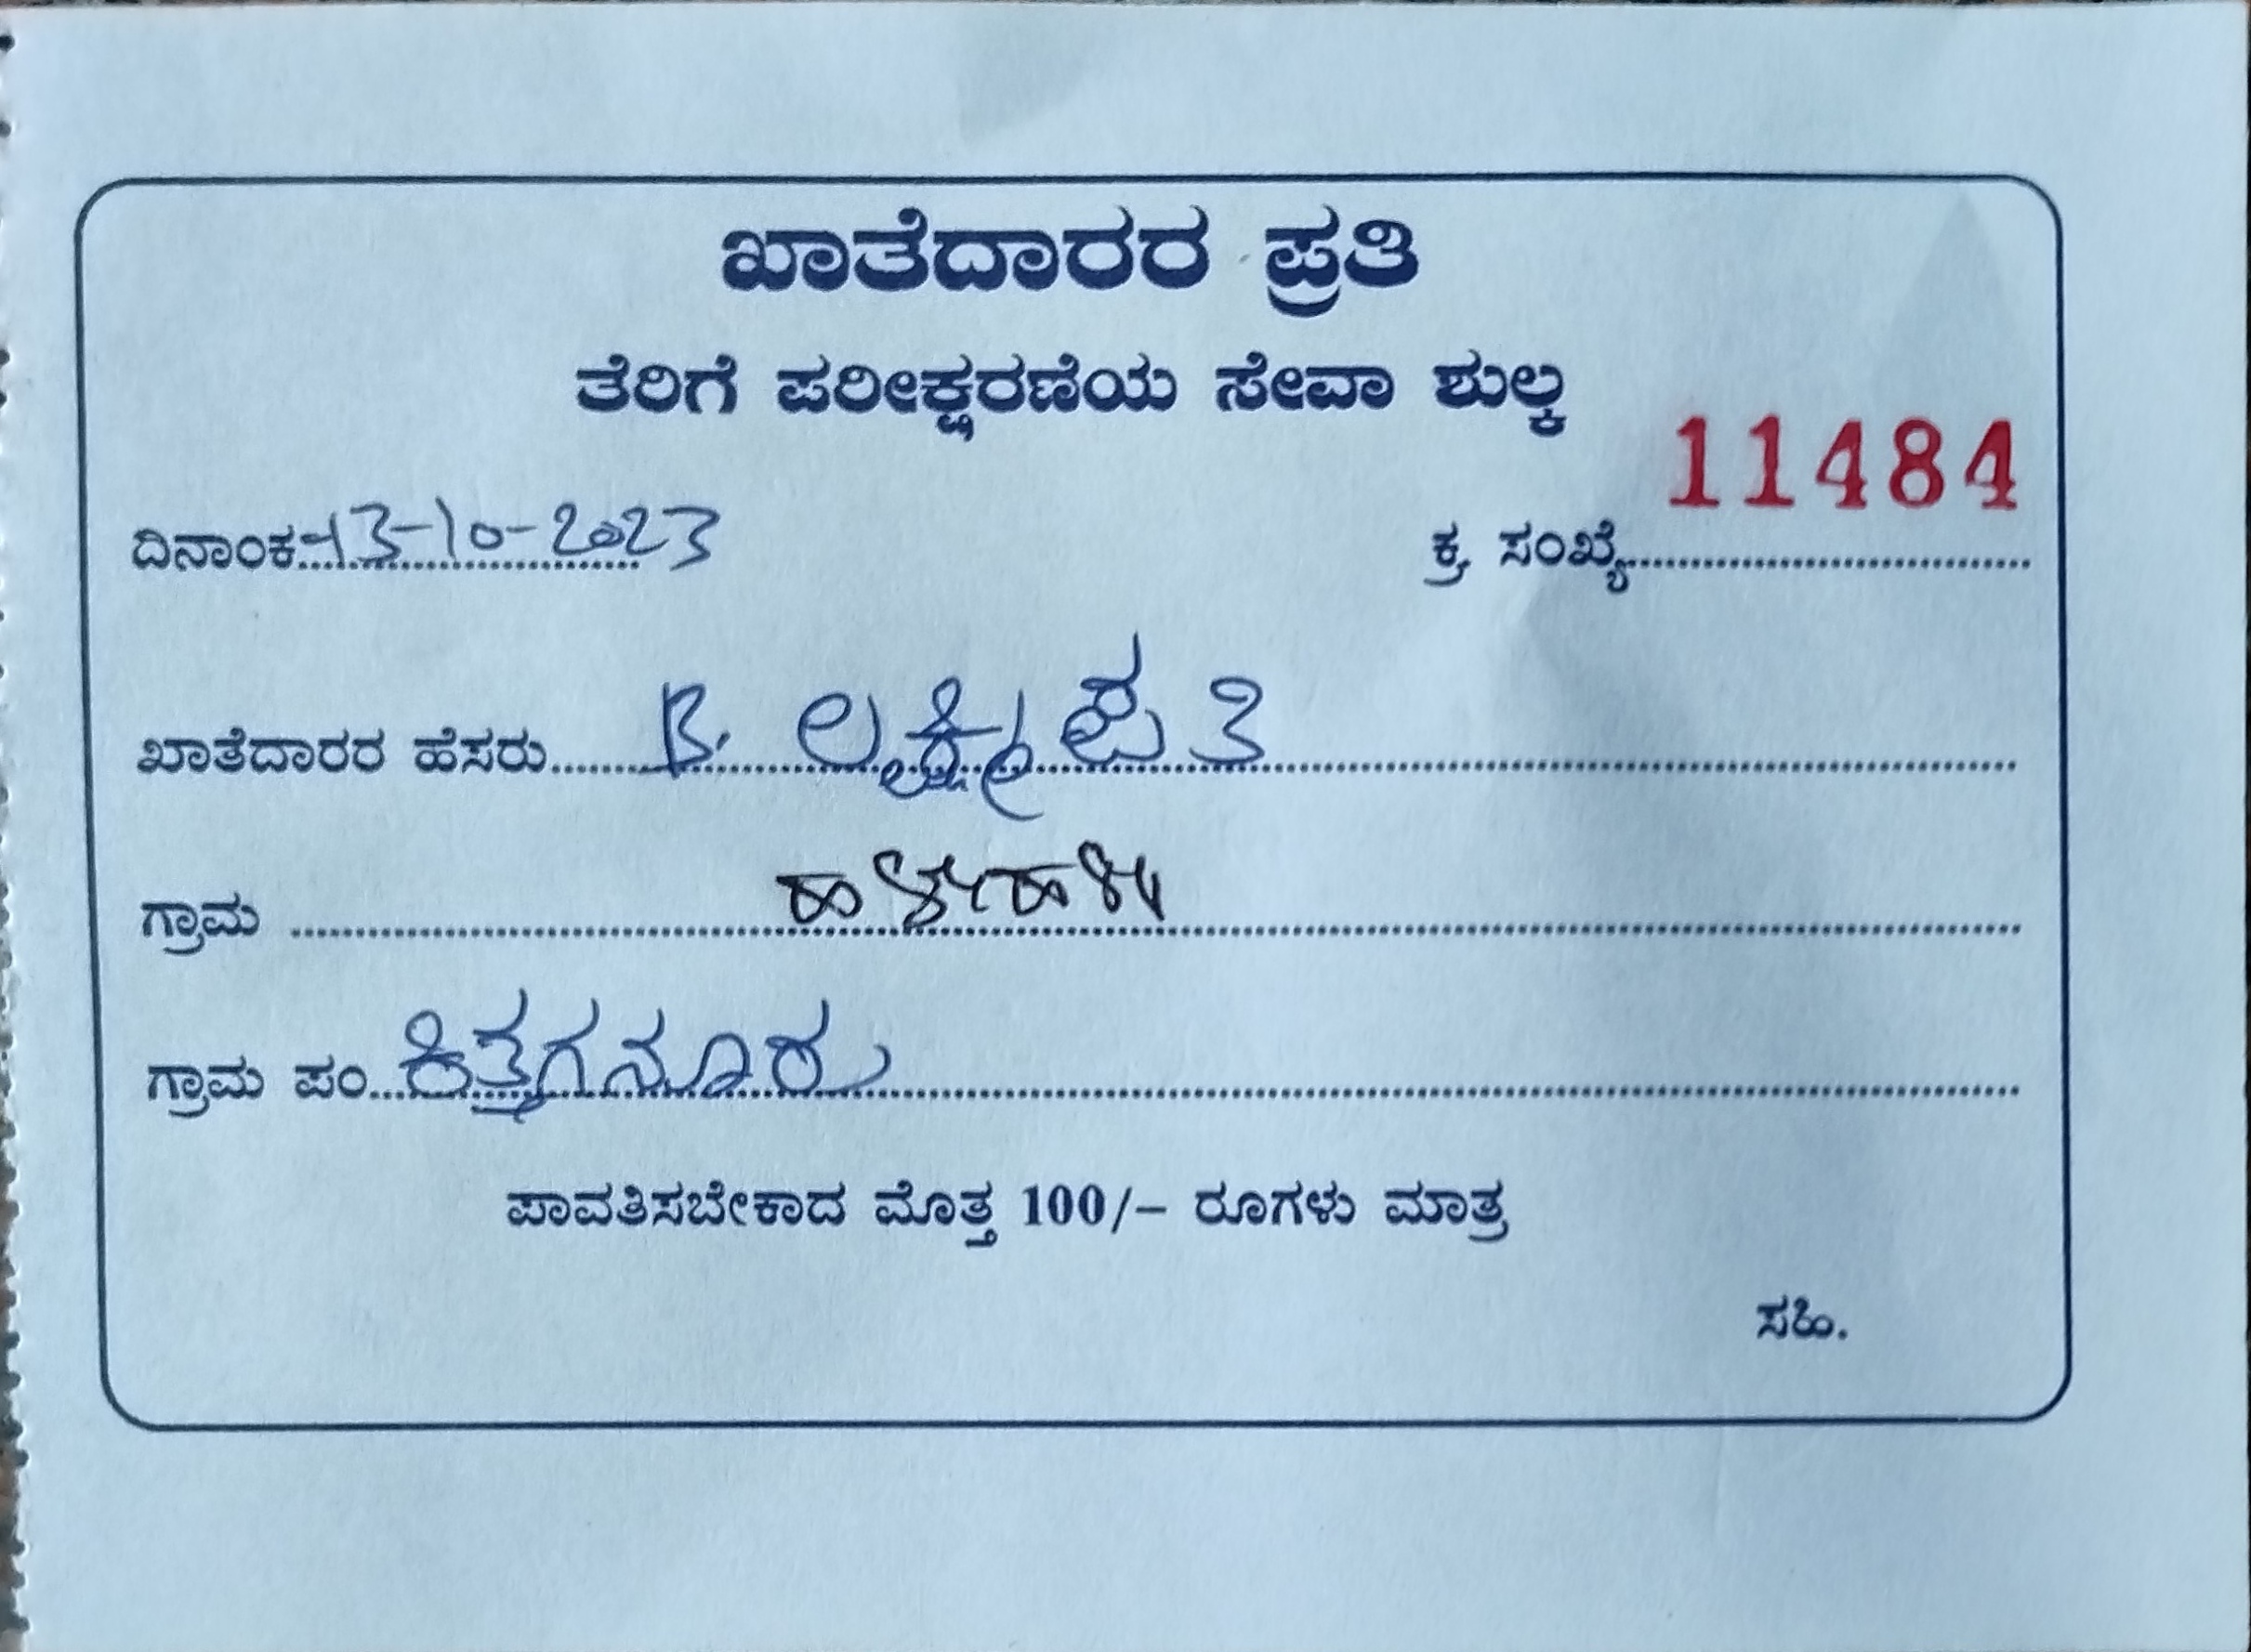 ಖಾತೆದಾರರ ಪ್ರತಿ
ತೆರಿಗೆ ಪರೀಕ್ಷರಣೆಯ ಸೇವಾ ಶುಲ್ಕ
11484
ದಿನಾಂಕ 13-10-2023 ಕ್ರ ಸಂಖ್ಯೆ
ಖಾತೆದಾರರ ಹೆಸರು B. ಲಕ್ಷ್ಮೀಪತಿ
ಗ್ರಾಮ
ಗ್ರಾಮ ಪಂ ಕಿತ್ತಗನೂರು
ಪಾವತಿಸಬೇಕಾದ ಮೊತ್ತ 100/– ರೂಗಳು ಮಾತ್ರ
ಸಹಿ.